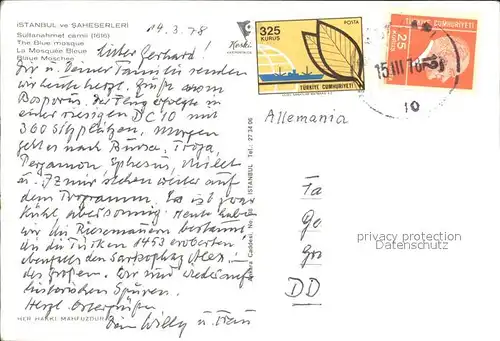 İSTANBUL ve ŞAHESERLERİ
Sultanahmet camii (1616)
The Blue mosque
La Mosquée Bleue
Blaue Moschee
14.3.78
Lieber Gerhard!
Dir u. Deiner Familie senden
wir heute herzl. Grüße vom
Bosporus. Der Flug erfolgte in
einer riesigen DC 10 mit
360 Sitzplätzen. Morgen
geht es nach Bursa, Troja,
Pergamon Ephesus, Milet
u. Izmir stehen weiter auf
dem Programm. Es ist zwar
kühl, aber sonnig. Heute haben
wir die Riesenmauern bestaunt
die die Türken 1453 eroberten
ebenfalls den Sarkophag Alex.
des Großen. Wir sind wieder auf
historischen Spuren.
Herzl. Ostergrüße
Dein Willy u. Frau
HER HAKKI MAHFUZDUR
Ankara Caddesi No. İSTANBUL Tel.: 27 34 06
325
KURUŞ
POSTA
TÜRKİYE CUMHURİYETİ
TÜRKİYE CUMHURİYETİ
25
KURUŞ
15 III 78
10
Allemania
Ta
Ge
Gro
DD
privacy protection
Datenschutz